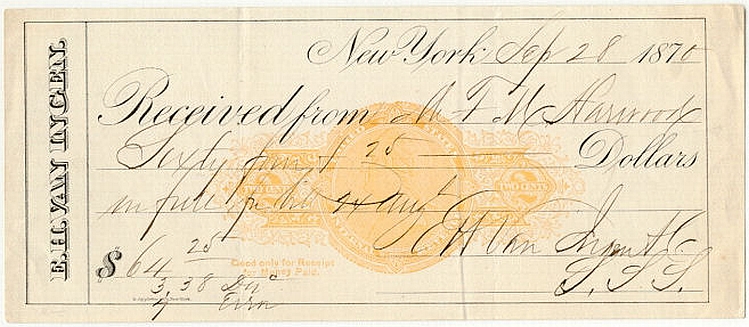 E.H. VAN INGEN.
New York Sep 28 1870
Received from Mr F M Harwood
Sixty four + 25 Dollars
in full for bill 24 Augt
TWO CENTS TWO CENTS
$64 25
Good only for Receipt
for Money Paid.
E H Van Ingen & Co
3.38